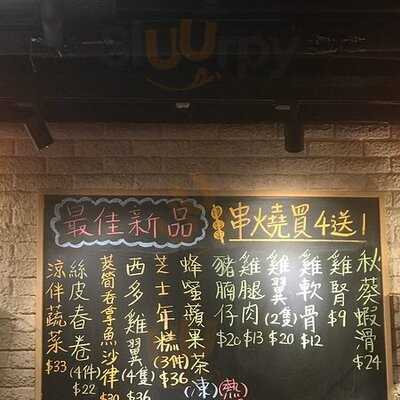 Sluurpy
最佳新品
串燒買4送1
涼伴蔬菜 $33
絲皮春卷 (4件) $22
吞拿魚沙律
西多雞翼 (4隻) $36
芝士年糕 (3件) $36
蜂蜜蘋果茶 (凍) (熱)
豬腩仔 $20
雞腿肉 $13
雞翼 (2隻) $20
雞軟骨 $12
雞腎 $9
秋葵蝦滑 $24